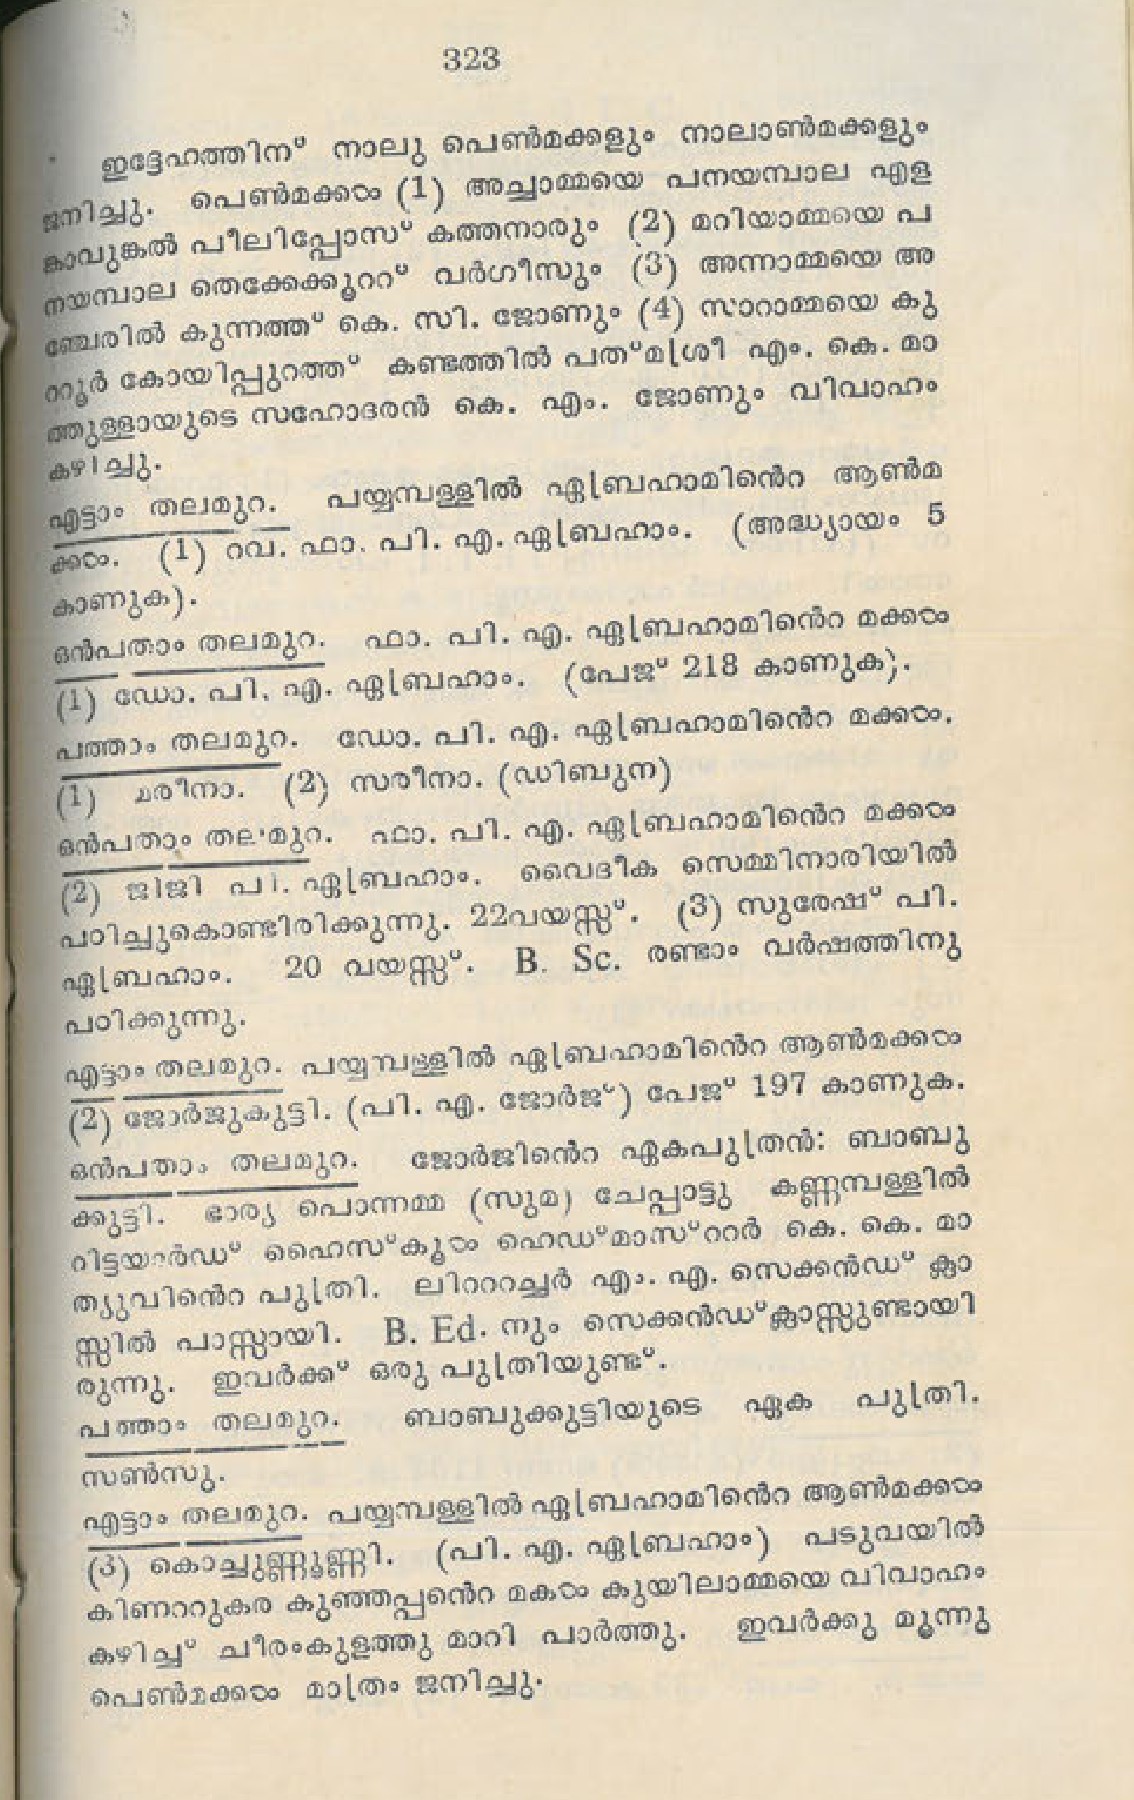 323
ഇദ്ദേഹത്തിന് നാലു പെൺമക്കളും നാലാൺമക്കളും
ജനിച്ചു. പെൺമക്കൾ (1) അച്ചാമ്മയെ പനയമ്പാല എള
ങ്കാവുങ്കൽ പീലിപ്പോസ് കത്തനാരും (2) മറിയാമ്മയെ പ
നയമ്പാല തെക്കേക്കൂററ് വർഗീസും (3) അന്നാമ്മയെ അ
ഞ്ചേരിൽ കുന്നത്ത് കെ. സി. ജോണും (4) സാറാമ്മയെ കു
ററൂർ കോയിപ്പുറത്ത് കണ്ടത്തിൽ പത്മശ്രീ എം. കെ. മാ
ത്തുള്ളായുടെ സഹോദരൻ കെ. എം. ജോണും വിവാഹം
കഴിച്ചു.
എട്ടാം തലമുറ. പയ്യമ്പള്ളിൽ ഏബ്രഹാമിൻെറ ആൺമ
ക്കൾ. (1) റവ. ഫാ. പി. എ. ഏബ്രഹാം. (അദ്ധ്യായം 5
കാണുക).
ഒൻപതാം തലമുറ. ഫാ. പി. എ. ഏബ്രഹാമിൻെറ മക്കൾ
(1) ഡോ. പി. എ. ഏബ്രഹാം. (പേജ് 218 കാണുക).
പത്താം തലമുറ. ഡോ. പി. എ. ഏബ്രഹാമിൻെറ മക്കൾ.
(1) മരീനാ. (2) സരീനാ. (ഡിബുന)
ഒൻപതാം തലമുറ. ഫാ. പി. എ. ഏബ്രഹാമിൻെറ മക്കൾ
(2) ജിജി പി. ഏബ്രഹാം. വൈദീക സെമ്മിനാരിയിൽ
പഠിച്ചുകൊണ്ടിരിക്കുന്നു. 22വയസ്സ്. (3) സുരേഷ് പി.
ഏബ്രഹാം. 20 വയസ്സ്. B. Sc. രണ്ടാം വർഷത്തിനു
പഠിക്കുന്നു.
എട്ടാം തലമുറ. പയ്യമ്പള്ളിൽ ഏബ്രഹാമിൻെറ ആൺമക്കൾ
(2) ജോർജുകുട്ടി. (പി. എ. ജോർജ്) പേജ് 197 കാണുക.
ഒൻപതാം തലമുറ. ജോർജിൻെറ ഏകപുത്രൻ: ബാബു
ക്കുട്ടി. ഭാര്യ പൊന്നമ്മ (സുമ) ചേപ്പാട്ടു കണ്ണമ്പള്ളിൽ
റിട്ടയാർഡ് ഹൈസ്കൂൾ ഹെഡ്മാസ്ററർ കെ. കെ. മാ
ത്യുവിൻെറ പുത്രി. ലിറററച്ചർ എം. എ. സെക്കൻഡ് ക്ലാ
സ്സിൽ പാസ്സായി. B. Ed. നും സെക്കൻഡ്ക്ലാസ്സുണ്ടായി
രുന്നു. ഇവർക്ക് ഒരു പുത്രിയുണ്ട്.
പത്താം തലമുറ. ബാബുക്കുട്ടിയുടെ ഏക പുത്രി.
സൺസു.
എട്ടാം തലമുറ. പയ്യമ്പള്ളിൽ ഏബ്രഹാമിൻെറ ആൺമക്കൾ
(3) കൊച്ചുണ്ണൂണ്ണി. (പി. എ. ഏബ്രഹാം) പടുവയിൽ
കിണററുകര കുഞ്ഞപ്പൻെറ മകൾ കുയിലാമ്മയെ വിവാഹം
കഴിച്ച് ചീരംകുളത്തു മാറി പാർത്തു. ഇവർക്കു മൂന്നു
പെൺമക്കൾ മാത്രം ജനിച്ചു.